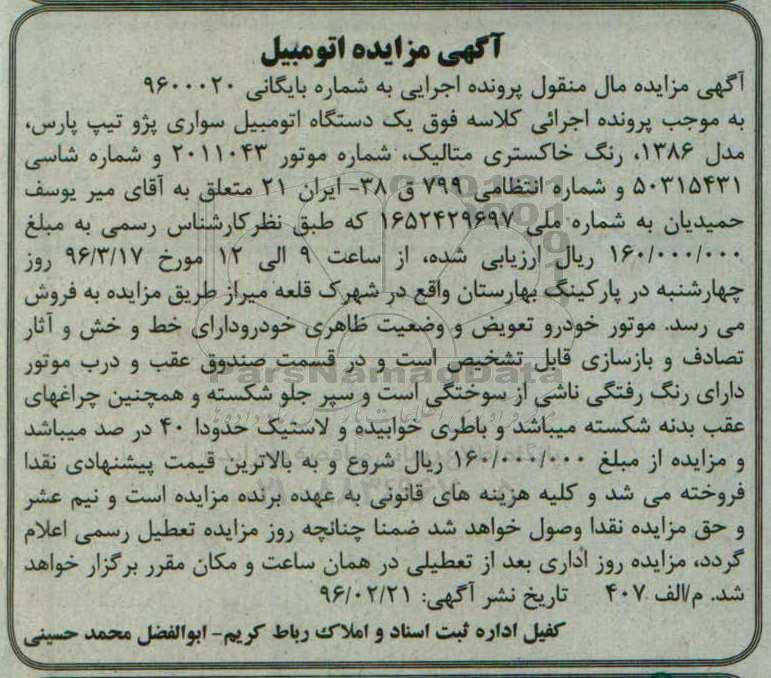 آگهی مزایده اتومبیل
آگهی مزایده مال منقول پرونده اجرایی به شماره بایگانی ۹۶۰۰۰۲۰
به موجب پرونده اجرائی کلاسه فوق یک دستگاه اتومبیل سواری پژو تیپ پارس،
مدل ۱۳۸۶، رنگ خاکستری متالیک، شماره موتور ۲۰۱۱۰۴۳ و شماره شاسی
۵۰۳۱۵۴۳۱ و شماره انتظامی ۷۹۹ ق ۳۸- ایران ۲۱ متعلق به آقای میر یوسف
حمیدیان به شماره ملی ۱۶۵۲۴۲۹۶۹۷ که طبق نظرکارشناس رسمی به مبلغ
۱۶۰/۰۰۰/۰۰۰ ریال ارزیابی شده، از ساعت ۹ الی ۱۲ مورخ ۹۶/۳/۱۷ روز
چهارشنبه در پارکینگ بهارستان واقع در شهرک قلعه میراز طریق مزایده به فروش
می رسد. موتور خودرو تعویض و وضعیت ظاهری خودرودارای خط و خش و آثار
تصادف و بازسازی قابل تشخیص است و در قسمت صندوق عقب و درب موتور
دارای رنگ رفتگی ناشی از سوختگی است و سپر جلو شکسته و همچنین چراغهای
عقب بدنه شکسته میباشد و باطری خوابیده و لاستیک حدودا ۴۰ در صد میباشد
و مزایده از مبلغ ۱۶۰/۰۰۰/۰۰۰ ریال شروع و به بالاترین قیمت پیشنهادی نقدا
فروخته می شد و کلیه هزینه های قانونی به عهده برنده مزایده است و نیم عشر
و حق مزایده نقدا وصول خواهد شد ضمنا چنانچه روز مزایده تعطیل رسمی اعلام
گردد، مزایده روز اداری بعد از تعطیلی در همان ساعت و مکان مقرر برگزار خواهد
شد. م/الف ۴۰۷ تاریخ نشر آگهی: ۹۶/۰۲/۲۱
کفیل اداره ثبت اسناد و املاک رباط کریم- ابوالفضل محمد حسینی
ParsNamadData